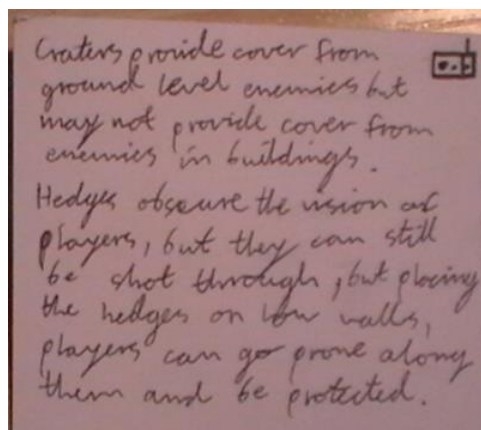 Craters provide cover from
ground level enemies but
may not provide cover from
enemies in buildings.
Hedges obscure the vision of
players, but they can still
be shot through, but placing
the hedges on low walls,
players can go prone along
them and be protected.